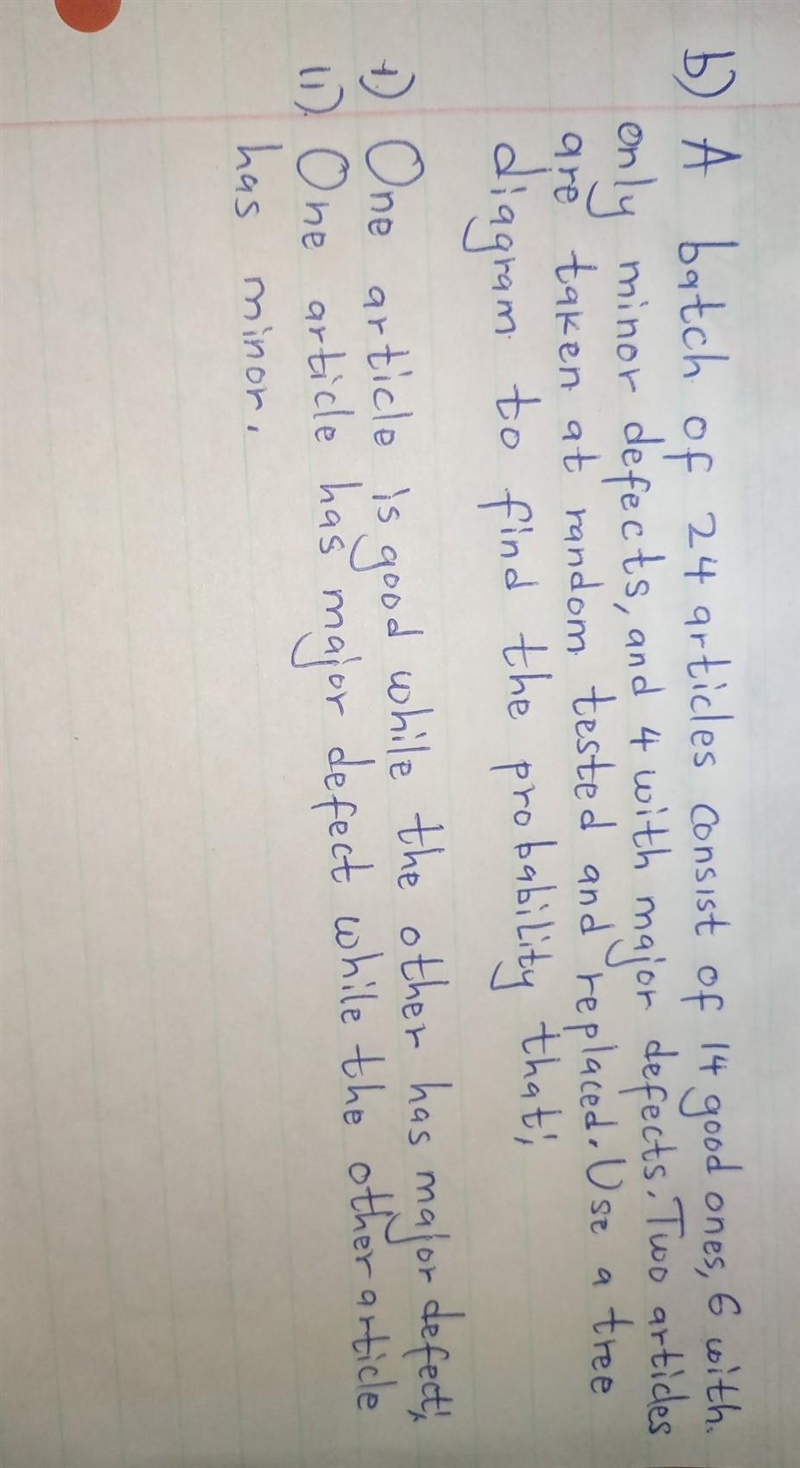 b) A batch of 24 articles consist of 14 good ones, 6 with
only minor defects, and 4 with major defects. Two articles
are taken at random tested and replaced. Use a tree
diagram to find the probability that;
i) One article is good while the other has major defect;
ii) One article has major defect while the other article
has minor.